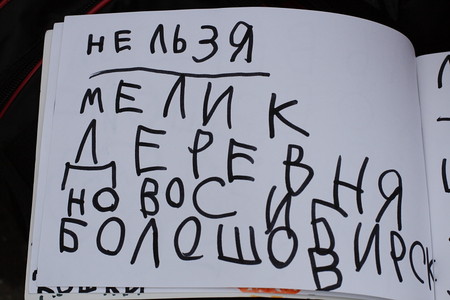 НЕЛЬЗЯ
МЕЛИК
ДЕРЕВНЯ
НОВОСИБИРСК
БОЛОШОВ